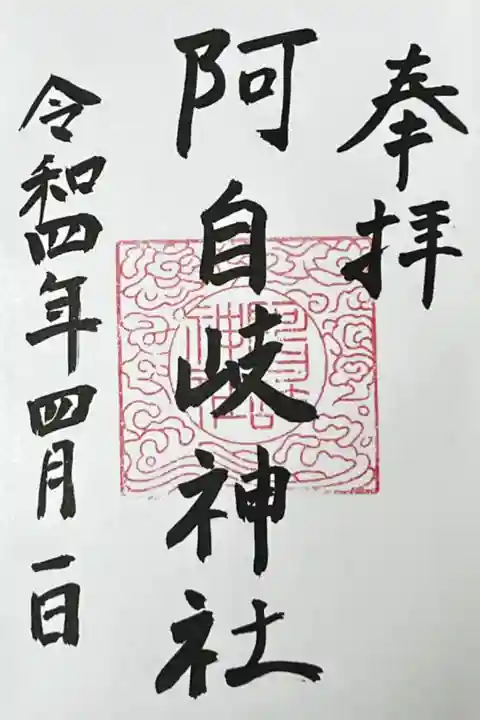 奉拝
阿自岐神社
令和四年四月一日